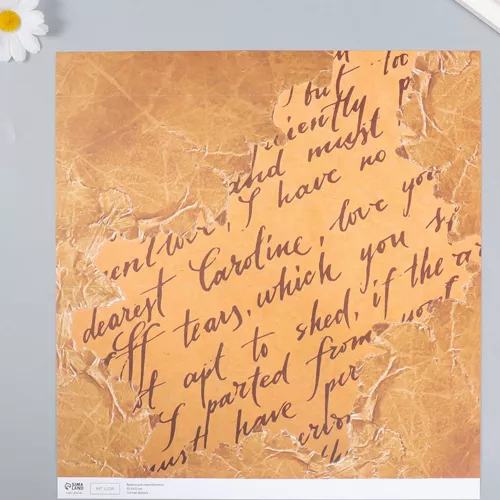 I but too
ciently p
and must
I have no
dearest Caroline, love you
Off tears, which you s
apt to shed, if the
I parted from your
must have per